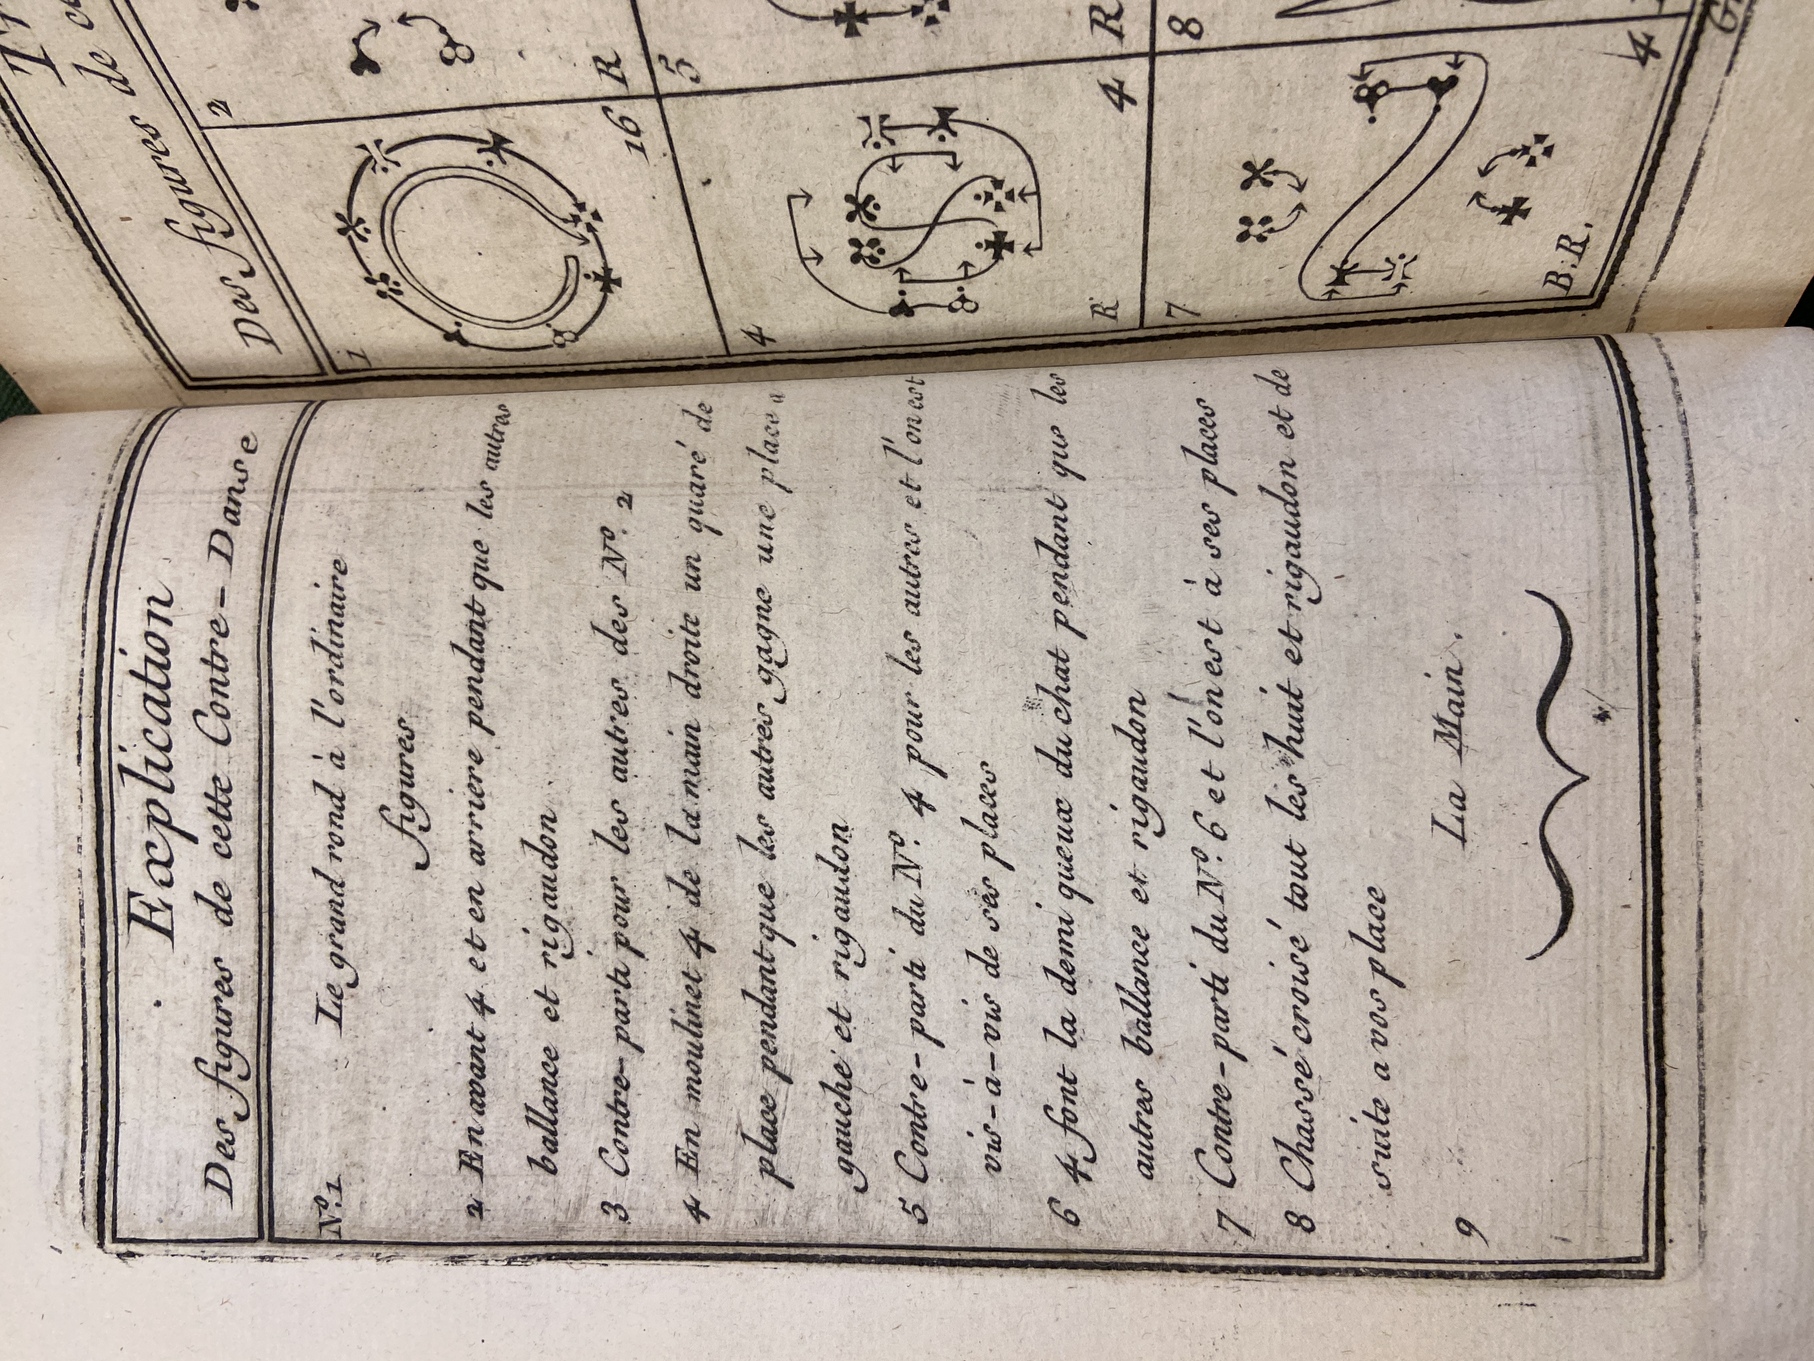 Explication
Des figures de cette Contre-Danse
Nº. 1 Le grand rond à l'ordinaire
figures
2 En avant 4 et en arriere pendant que les autres
ballance et rigaudon
3 Contre-parti pour les autres des Nº. 2
4 En moulinet 4 de la main droite un quaré de
place pendant que les autres gagne une place a
gauche et rigaudon
5 Contre-parti du Nº. 4 pour les autres et l'on est
vis-á-vis de ses places
6 4 font la demi queux du chat pendant que les
autres ballance et rigaudon
7 Contre-parti du Nº. 6 et l'on est à ses places
8 Chassé croisé tout les huit et rigaudon et de
suite a vos place
9 La Main.
Des figures de
1
16
2
R
4
R 4
5
R
7
B.R. 4
8